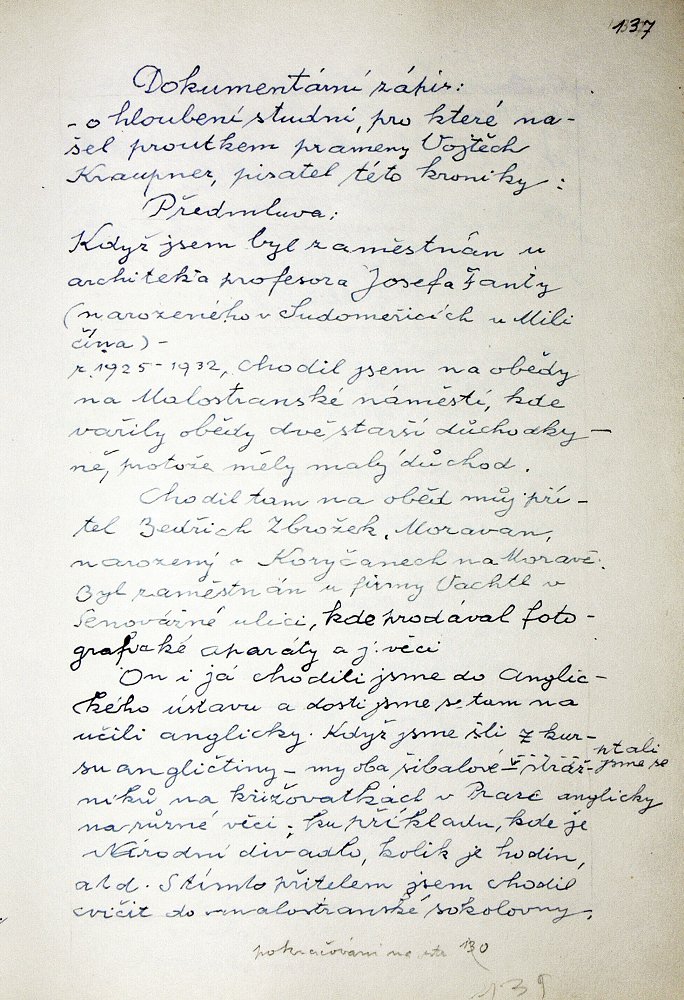 137
Dokumentární zápis:
- o hloubení studní, pro které na-
šel proutkem prameny Vojtěch
Kraupner, pisatel této kroniky:
Předmluva:
Když jsem byl zaměstnán u
architekta profesora Josefa Fanty
(narozeného v Sudoměřicích u Mili
čína) -
r. 1925-1932, chodil jsem na obědy
na Malostranské náměstí, kde
vařily obědy dvě starší důchodky-
ně, protože měly malý důchod.
Chodil tam na oběd můj pří-
tel Bedřich Zbrožek, Moravan,
narozený v Koryčanech na Moravě.
Byl zaměstnán u firmy Vachtl v
Senovážné ulici, kde prodával foto-
grafické aparáty a j. věci
On i já chodili jsme do Anglic-
kého ústavu a dosti jsme se tam na
učili anglicky. Když jsme šli z kur-
su angličtiny - my oba šibalové ptali
jsme se stráž-
níků na křižovatkách v Praze anglicky
na různé věci; ku příkladu, kde je
Národní divadlo, kolik je hodin,
atd. S tímto přítelem jsem chodil
cvičit do malostranské sokolovny.
pokračování na str. 130
139